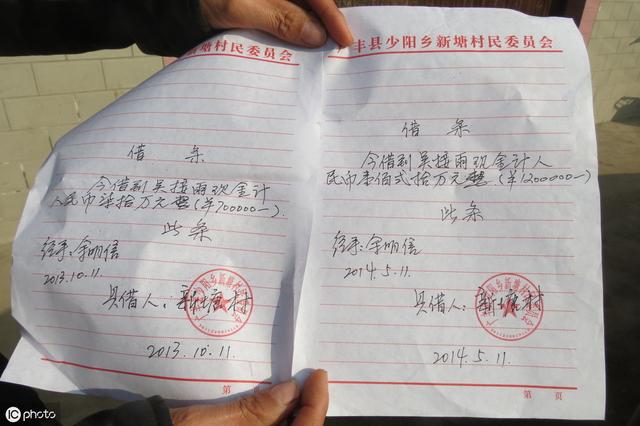 新塘村民委员会
借 条
今借到吴接雨现金计
人民币柒拾万元整(¥700000-).
此条
经手:余明信
2013.10.11.
具借人:新塘村
2013.10.11.
第
丰县少阳乡新塘村民委员会
借 条
今借到吴接雨现金计人
民币壹佰弍拾万元整(¥1200000-)
此条
经手:余明信
2014.5.11.
具借人:新塘村
2014.5.11.
第 页
iC photo